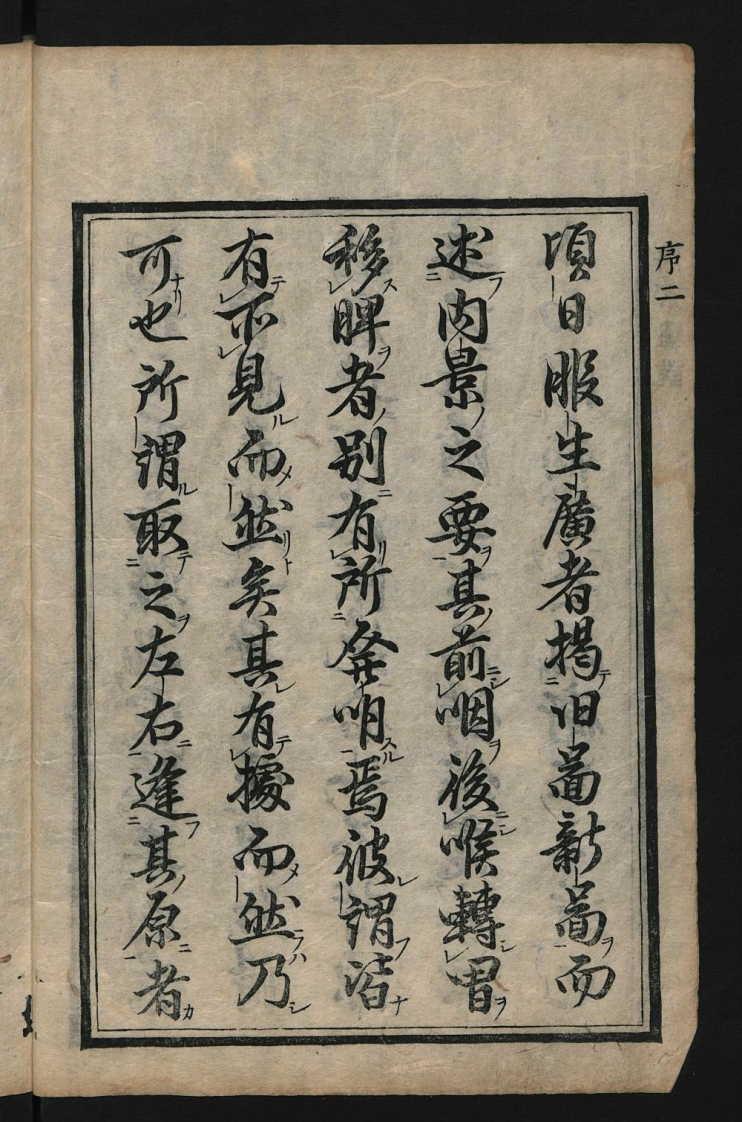 序二
頃日服生廣者揭旧啚新啚而
述内景之要其前咽後喉轉胃
移脾者別有所発明焉彼謂皆
有不見而然矣其有據而然乃
可也所謂取之左右逢其原者